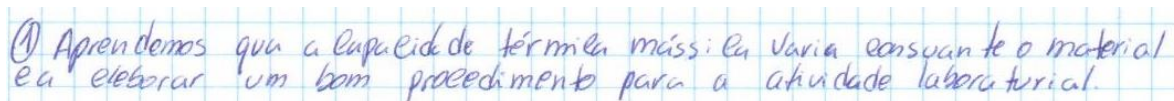 ① Aprendemos que a capacidade térmica mássica varia consuante o material
e a eleborar um bom procedimento para a atividade laboraturial.